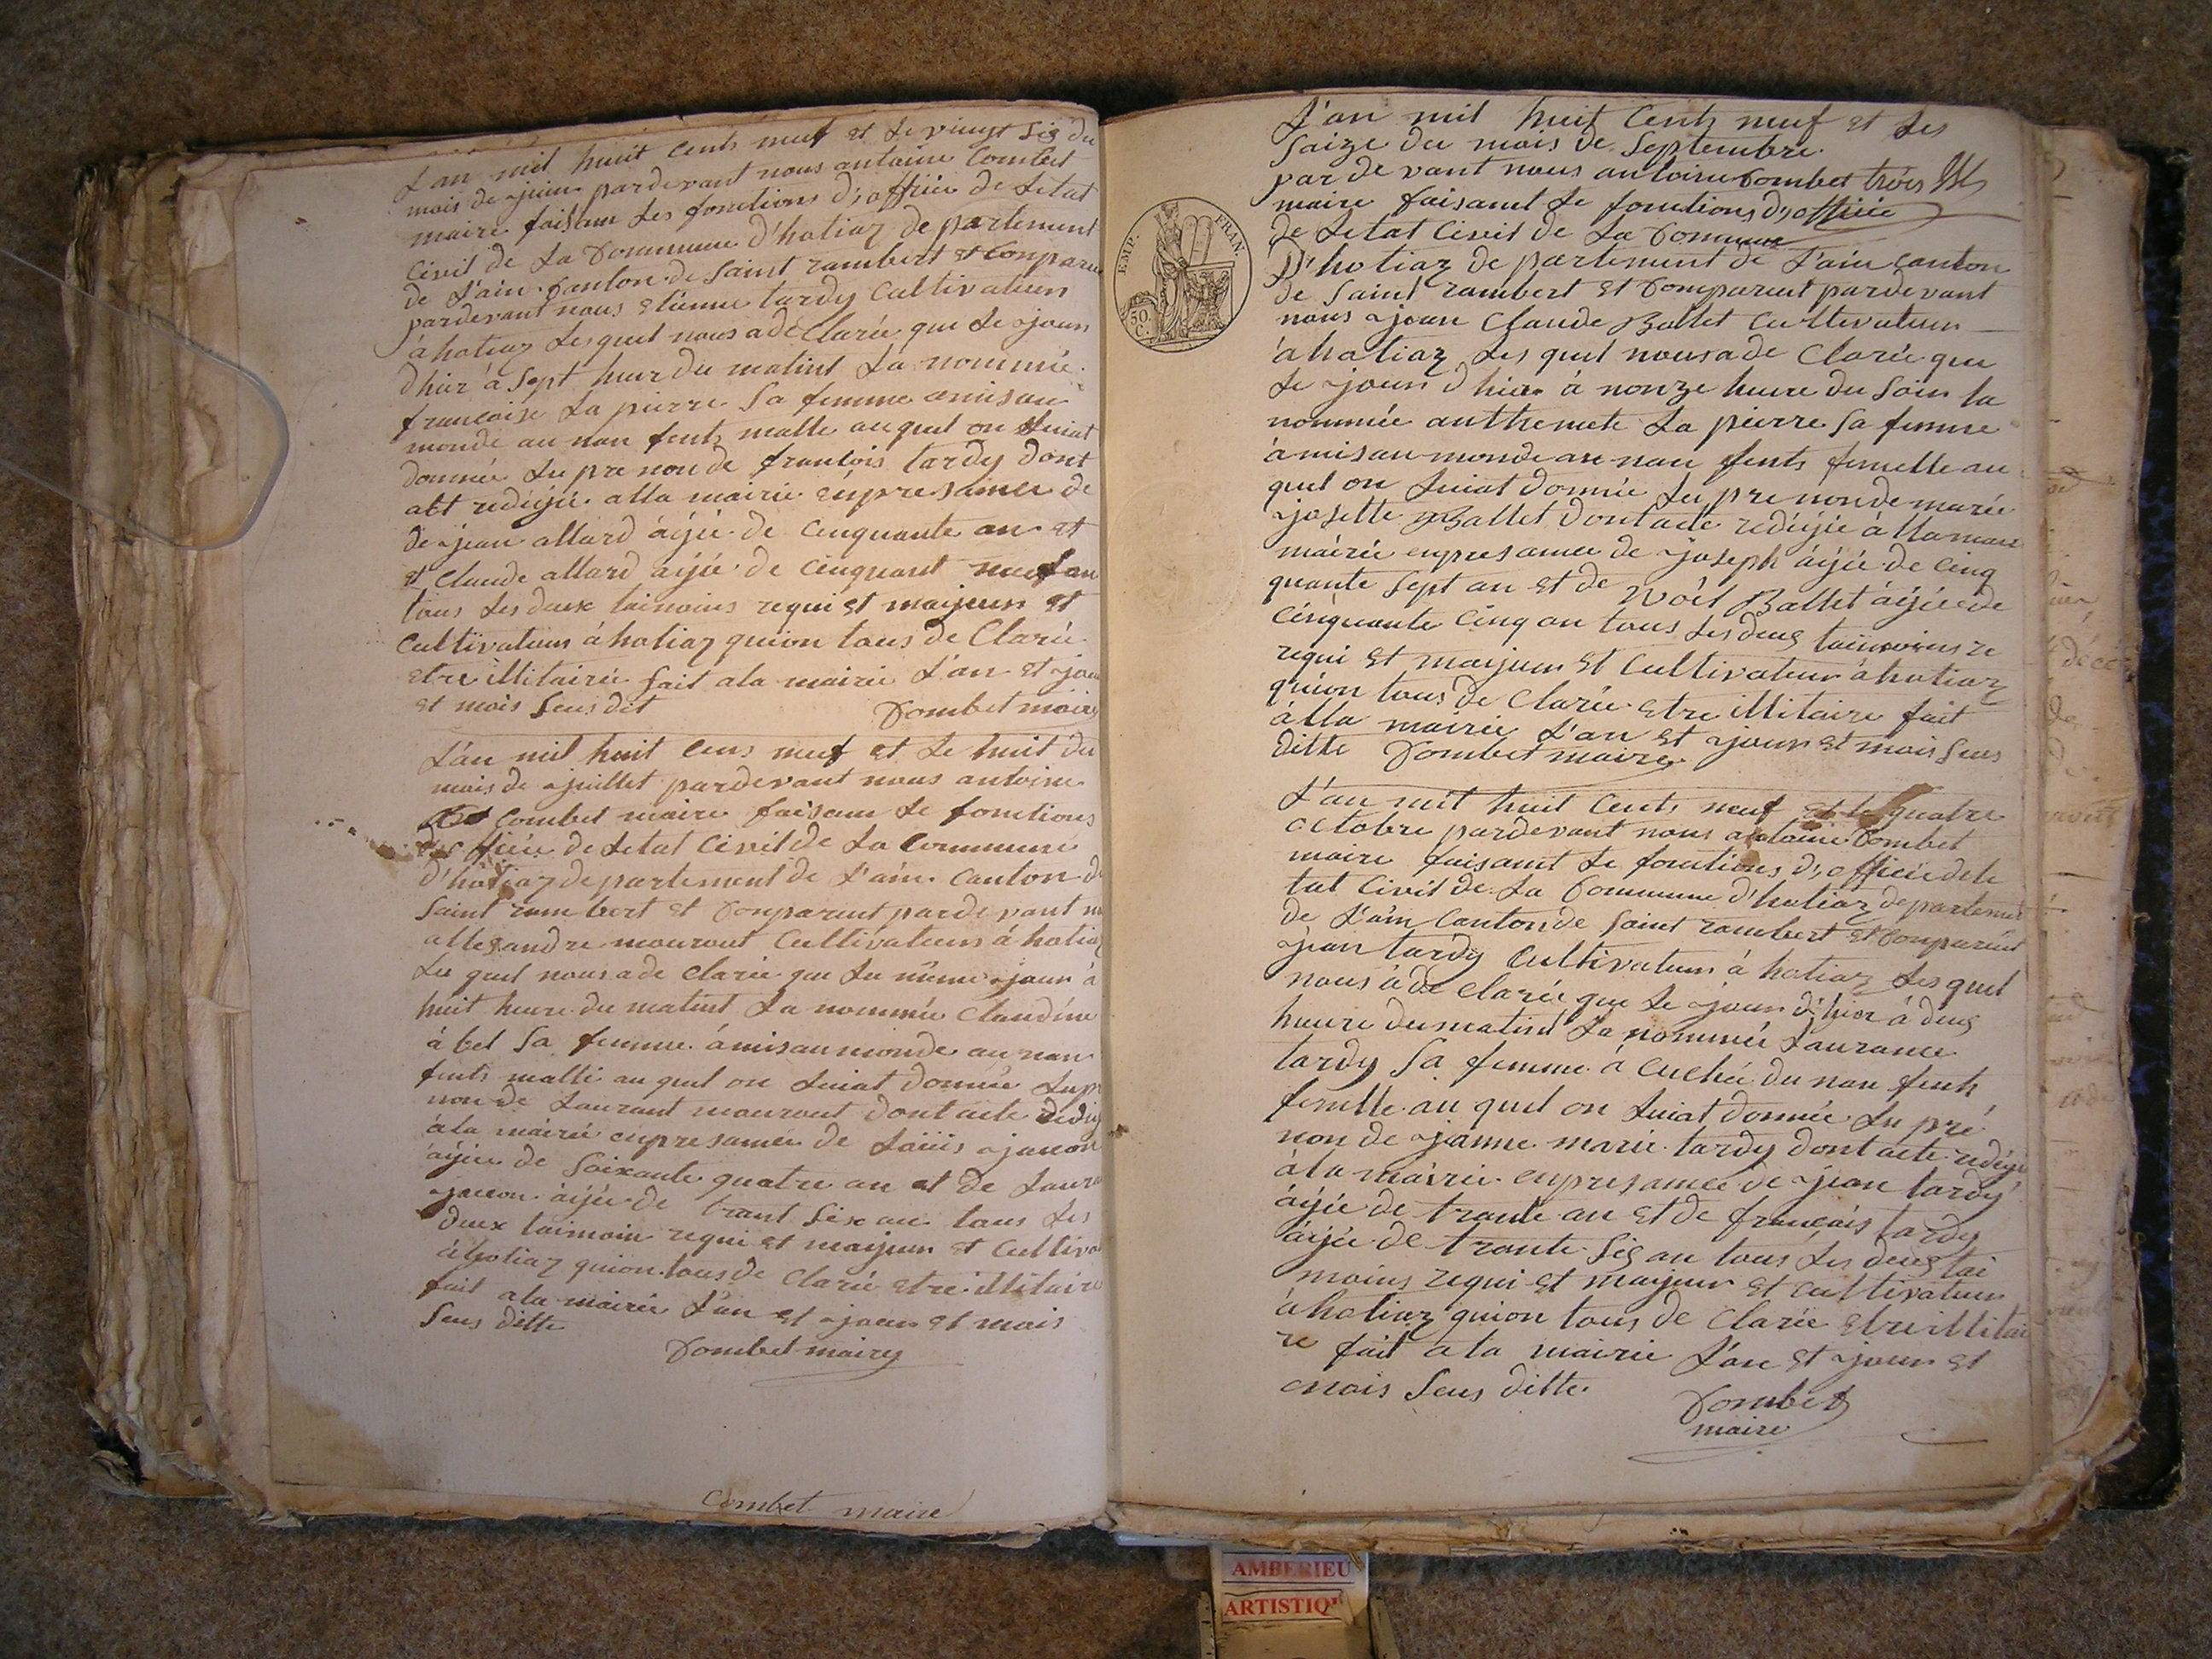 L'an mil huit cents neuf et le vingt sis du
mois de juin pardevant nous antoine Combet
maire faisan les fonctions d'officié de Letat
Civil de La Commune d'hotiaz de partement
de L'ain canton de saint rambert et Conparu
pardevant nous etienne tardy Cultivateur
à hotiaz Lesquel nous a de Clarée que Le jour
dhier à sept heur du matint La nommée
francoise La pierre Sa femme amis au
monde au nan fents malle auquel on Luiat
donnée Lu pre non de francois tardy dont
act redigée alla mairie enpresance de
de jean allard àgée de Cinquante an et
et Claude allard aigée de Cinquant neuf an
tous Les deux taimoins requi et maijeur et
Cultivateur à hotiaz quion tous de Clarée
etre illitairée fait ala mairie L'an et jour
et mois Seus dit Combet maire
L'an mil huit Cens neuf et Le huit du
mois de juillet pardevant nous antoine
Combet maire faisan Le fonctions
officié de Letat Civil de La Commune
d'hotiaz departement de L'ain Canton d
Saint rambert et Conparut pardevant n
allexandre mourout Cultivateur à hotiaz
Lu quel nous a de Clarée que Lu même jour à
huit heure du matint La nommée Claudine
à bel Sa femme àmis au monde au nan
fents malle au quel on Luiat donnée Lu pr
non de Laurant mourout dont acte redig
à la mairie enpresamée de Loüis jacon
àijée de Soixante quatre an et de Laura
jacon àijée de trant Six an tous Les
deux taimoin requi et maijeur et Cultiva
à hotiaz quion tous de Clarée etre illitaire
fait ala mairie L'an et jour et mois
Seus ditte
Combet maire
Combet maire
L'an mil huit Cents neuf et Les
Saize du mois de Septembre
par devant nous antoine Combet
maire faisant Le fonctions d'officié
de Letat Civil de La Commune
D'hotiaz de partement de L'ain canton
de Saint rambert et Comparut pardevant
nous jean Claude Ballet Cultivateur
à hotiaz Les quel nous a de Clarée que
Le jour d'hier à nonze heure du Soir la
nommée anthemete La pierre Sa femme
àmis au monde au nan fents femelle au
quel on Luiat donnée Lu pre non de marie
josette Ballet dont acte redigée à lla mai
mairie enpresamee de joseph àijée de Cinq
quante Sept an et de Noël Ballet àijée de
Cinquante Cinq an tous Les deus taimoins re
requi et maijeur et Cultivateur à hotiaz
quion tous de Clarée etre illitaire fait
àlla mairie L'an et jour et mois Seus
ditte Combet maire
L'an mil huit Cents neuf et le quatre
octobre pardevant nous antoine Combet
maire faisant Le fonctions d'officié dele
tat Civil de La Commune d'hotiaz departement
de L'ain Canton de Saint rambert et Conparut
jean tardy Cultivateur à hotiaz Les quel
nous à de Clarée que Le jour d'hier à deus
heure du matint La nommée Laurance
tardy Sa femme à Cuchée du nan fents
femelle au quel on Luiat donnée Lu pré
non de janne marie tardy dont acte redigé
à la mairie enpresamée de jean tardy
àijée de trante an et de francois tardy
àijée de trante Sis an tous Les deus tai
moins requi et mayeur et Cultivateur
à hotiaz quion tous de Clarée etre illitai
re fait a la mairie L'an et jour et
mois Seus ditte
Combet
maire
EMP. FRAN.
50 C.
AMBERIEU
ARTISTIQ